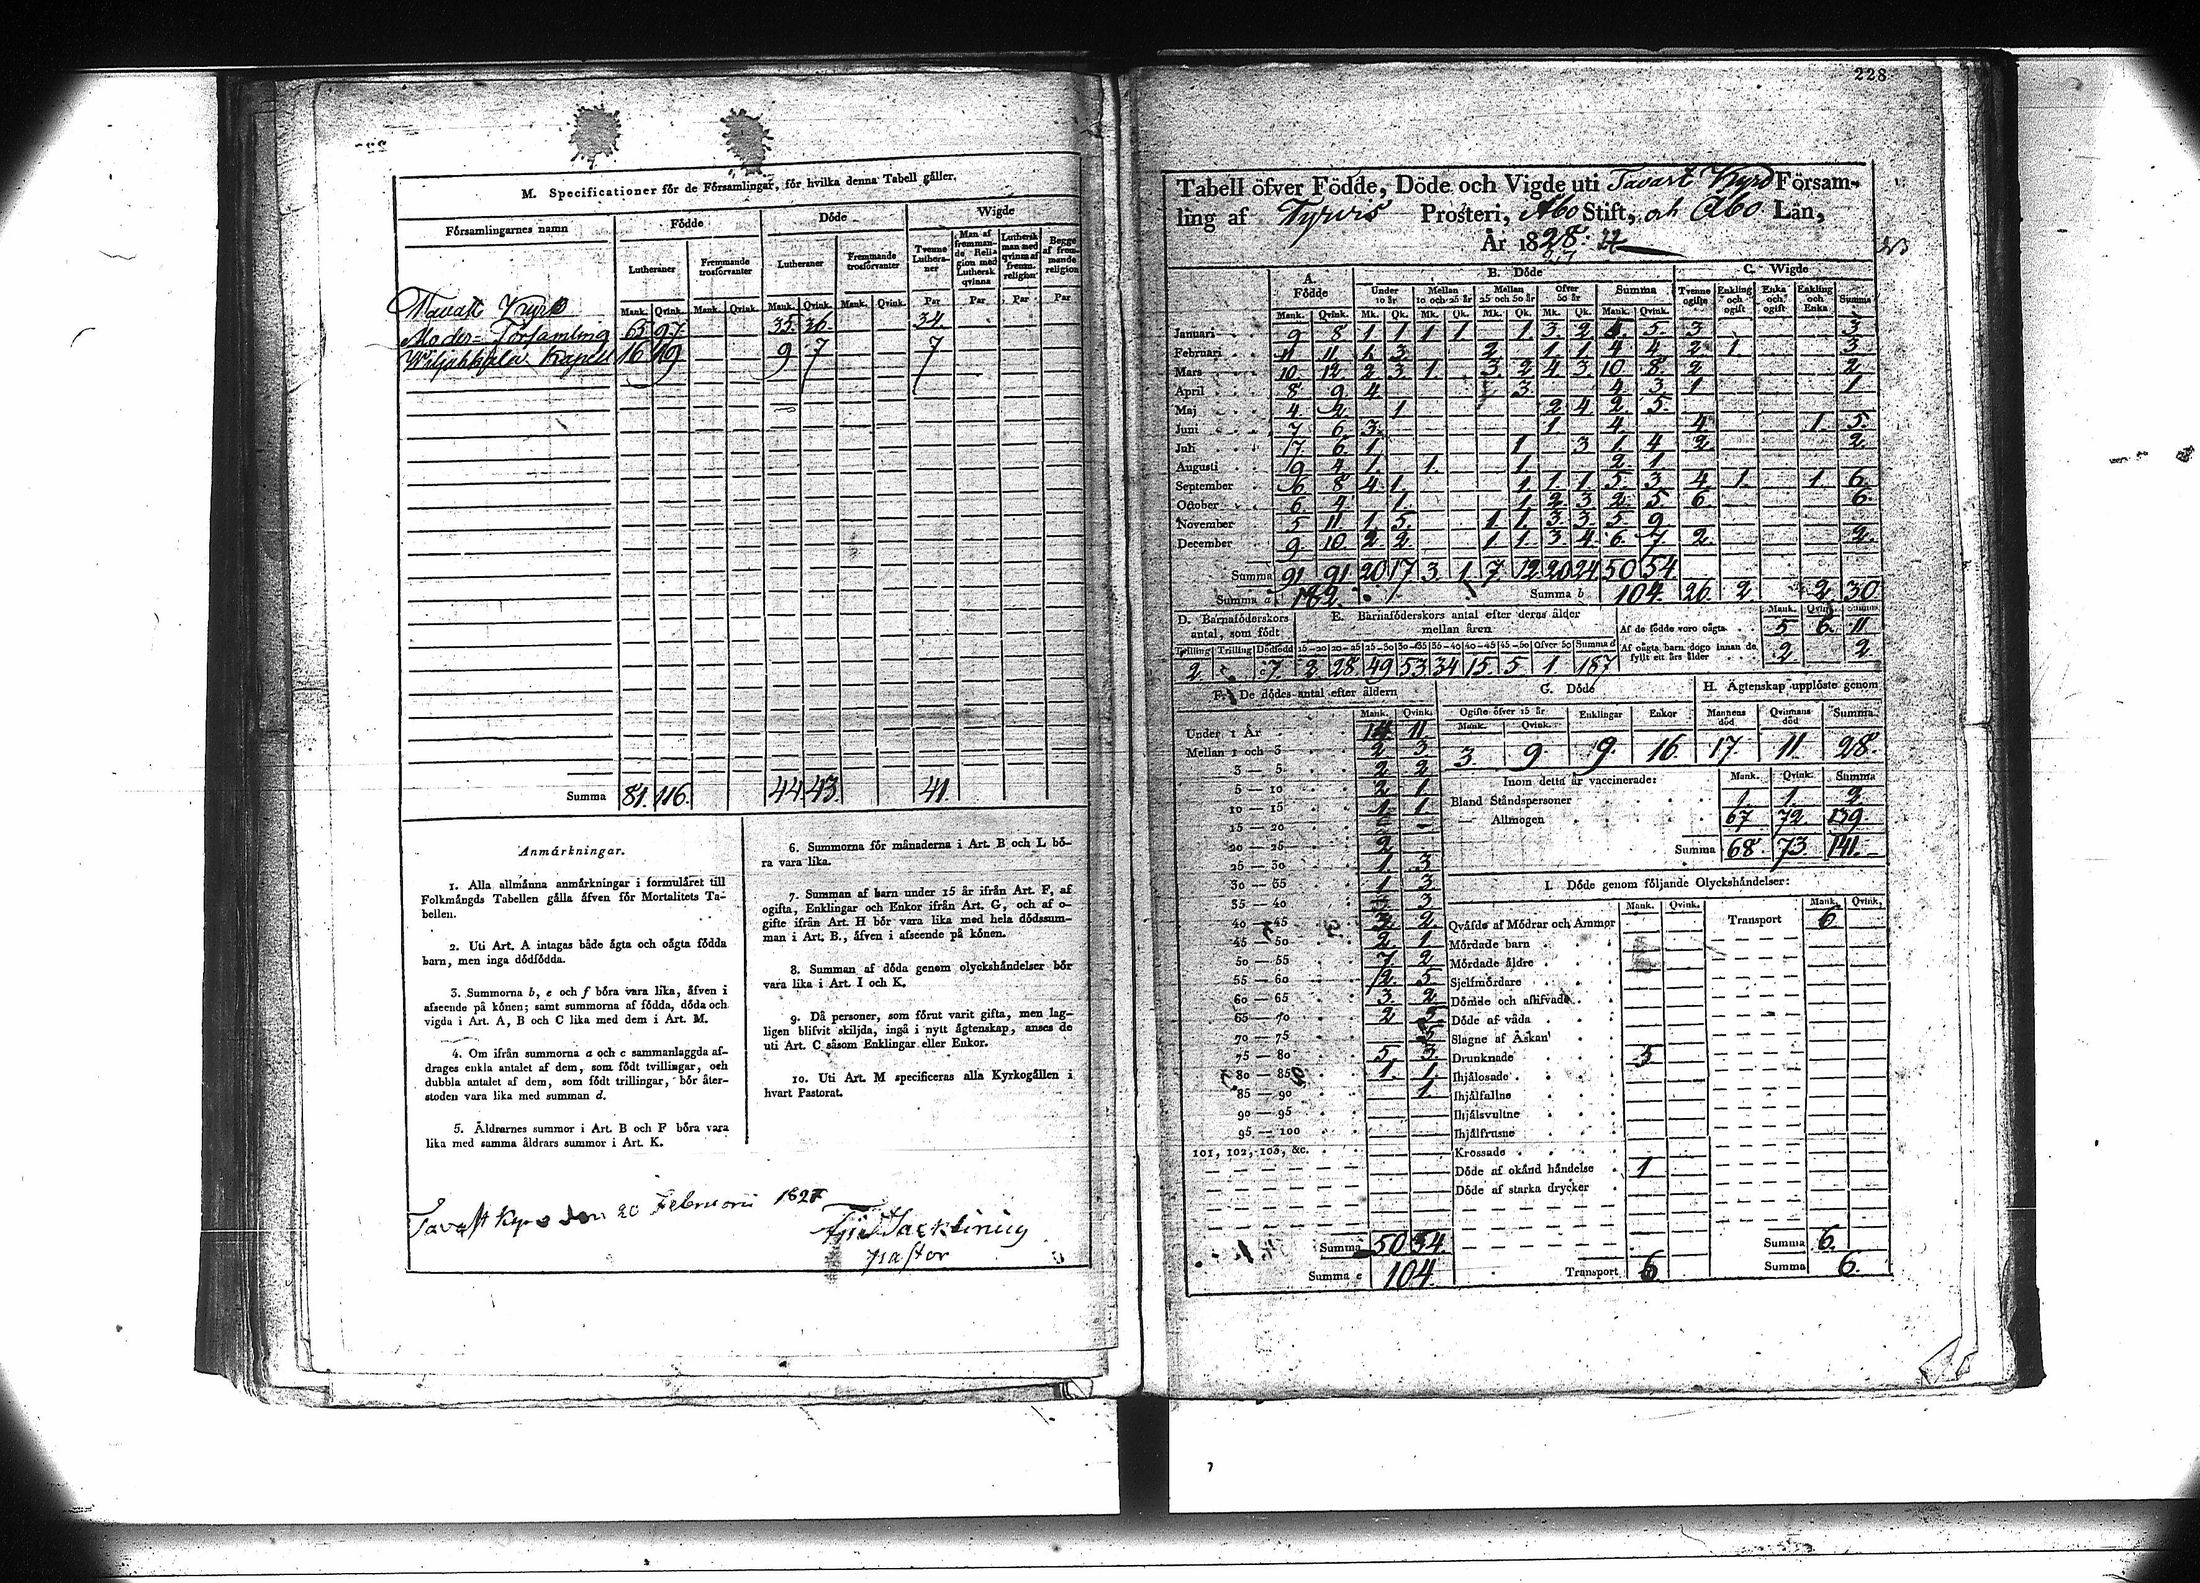 M. Specificationer för de Församlingar, för hvilka denna Tabell gäller.
Församlingarnes namn
Födde
Döde
Wigde
Lutheraner
Fremmande trosförvanter
Lutheraner
Fremmande trosförvanter
Tvenne Lutheraner
Man af fremmande Religion med Luthersk qvinna
Luthersk man med qvinna af fremm. religion
Begge af fremmande religion
Mank. Qvink. Mank. Qvink. Mank. Qvink. Mank. Qvink. Par Par Par Par
Tavast Kyro
Moder-Församling 65 97 35 36 34
Kapell 16 19 9 7 7
Summa 81. 116. 44 43 41
Anmärkningar.
1. Alla allmänna anmärkningar i formuläret till
Folkmängds Tabellen gälla äfven för Mortalitets Ta-
bellen.
2. Uti Art. A intagas både ägta och oägta födda
barn, men inga dödfödda.
3. Summorna b, e och f böra vara lika, äfven i
afseende på könen; samt summorna af födda, döda och
vigda i Art. A, B och C lika med dem i Art. M.
4. Om ifrån summorna a och c sammanlaggda af-
drages enkla antalet af dem, som födt tvillingar, och
dubbla antalet af dem, som födt trillingar, bör åter-
stoden vara lika med summan d.
5. Åldrarnes summor i Art. B och F böra vara
lika med samma åldrars summor i Art. K.
6. Summorna för månaderna i Art. B och L bö-
ra vara lika.
7. Summan af barn under 15 år ifrån Art. F, af
ogifta, Enklingar och Enkor ifrån Art. G, och af o-
gifte ifrån Art. H bör vara lika med hela dödssum-
man i Art. B., äfven i afseende på könen.
8. Summan af döda genom olyckshändelser bör
vara lika i Art. I och K.
9. Då personer, som förut varit gifta, men lag-
ligen blifvit skiljda, ingå i nytt ägtenskap, anses de
uti Art. C såsom Enklingar eller Enkor.
10. Uti Art. M specificeras alla Kyrkogällen i
hvart Pastorat.
Tavast Kyro den 20 Februarii 1827
pastor
228
Tabell öfver Födde, Döde och Vigde uti Tavast Kyro Försam-
ling af Tyrvis Prosteri, Åbo Stift, och Åbo Län,
År 1828.
A. Födde
B. Döde
C. Wigde
Under 10 år
Mellan 10 och 25 år
Mellan 25 och 50 år
Öfver 50 år
Summa
Tvenne ogifte
Enkling och ogift
Enka och ogift
Enkling och Enka
Summa
Mank. Qvink. Mk. Qk. Mk. Qk. Mk. Qk. Mk. Qk. Mank. Qvink.
Januari 9 8 1 1 1 1 1 3 2 5 5 3 3
Februari 11 11 1 3 2 1 1 4 4 2 1 3
Mars 10 12 2 3 1 3 2 4 3 10 8 2 2
April 8 9 4 3 4 3 1 1
Maj 4 2 1 2 4 2 5
Juni 7 6 3 1 4 4 1 5
Juli 7 6 1 1 3 1 4 2 2
Augusti 9 4 1 1 1 2 1
September 6 8 4 1 1 1 1 5 3 4 1 1 6
October 6 4 1 1 2 3 2 5 6 6
November 5 11 1 5 1 1 3 3 5 9
December 9 10 2 2 1 1 3 4 6 7 2 2
Summa 91 91 20 17 3 1 7 12 20 24 50 54
Summa a 182. Summa b 104. 26. 2 2 30
D. Barnaföderskors antal, som födt
E. Barnaföderskors antal efter deras ålder mellan åren
Mank. Qvink. Summa
Af de födde voro oägta 5 6 11
Af oägta barn dogo innan de fyllt ett års ålder 2 2
Trilling Dödfödd 15—20 20—25 25—30 30—35 35—40 40—45 45—50 Öfver 50 Summa d
2 7. 2 28 49 53 34 15 5 1 187
F. De dödes antal efter åldern
G. Döde
H. Ägtenskap upplöste genom
Mank. Qvink.
Ogifte öfver 15 år
Mank. Qvink.
Enklingar
Enkor
Mannens död
Qvinnans död
Summa
3. 9 9 16 17. 11 28.
Under 1 År 14 11
Mellan 1 och 3 2 3
3 — 5 2 2
5 — 10 2 1
10 — 15 1 1
15 — 20
20 — 25 2
25 — 30 1 3
30 — 35 1 3
35 — 40 3
40 — 45 3 2
45 — 50 2 1
50 — 55 7 2
55 — 60 2 5
60 — 65 3 2
65 — 70 2
70 — 75
75 — 80 5 3
80 — 85 1 1
85 — 90 1
90 — 95
95 — 100
101, 102, 103, &c.
Summa 50 54
Summa e 104.
Inom detta år vaccinerade:
Mank. Qvink. Summa
Bland Ståndspersoner 1. 1. 2
— Allmogen 67 72 139
Summa 68 73 141
I. Döde genom följande Olyckshändelser:
Mank. Qvink. Mank. Qvink.
Qväfde af Mödrar och Ammor
Transport 6
Mördade barn
Mördade äldre
Sjelfmördare
Dömde och aflifvade
Döde af våda
Slagne af Åskan
Drunknade 5
Ihjälosade
Ihjälfallne
Ihjälsvultne
Ihjälfrusne
Krossade
Döde af okänd händelse 1
Döde af starka drycker
Summa 6
Transport 6 Summa 6.